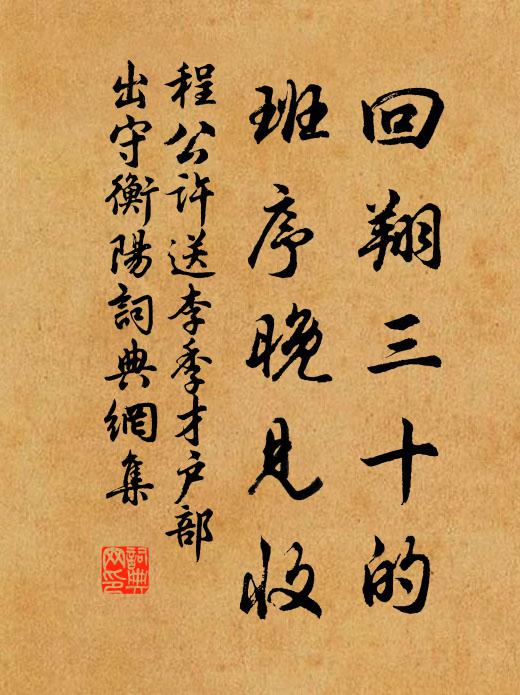 回翔三十的
班序晚見收
程公許送李季才戶部
出守衡陽詞典網集
詞典網印